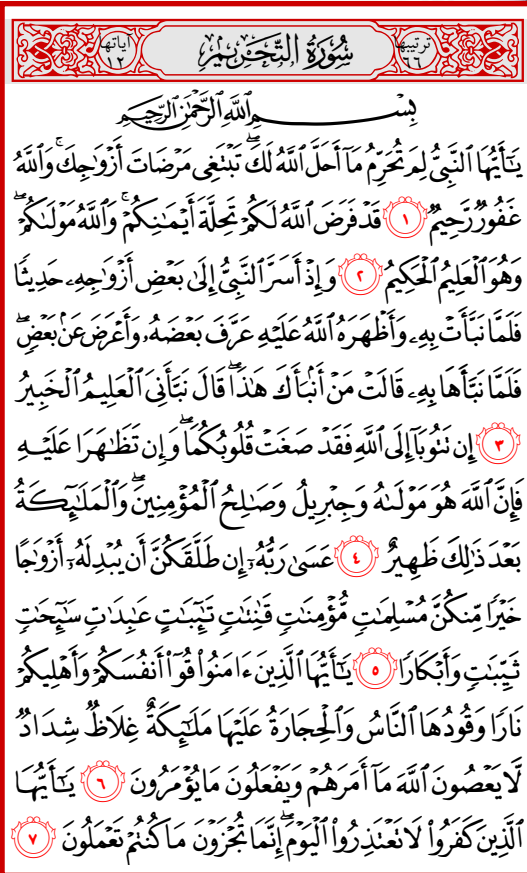 ترتيبها ٦٦ سُورَةُ التَّحْرِيمِ آياتها ١٢
بِسْمِ اللَّهِ الرَّحْمَٰنِ الرَّحِيمِ
يَـٰٓأَيُّهَا ٱلنَّبِىُّ لِمَ تُحَرِّمُ مَآ أَحَلَّ ٱللَّهُ لَكَ ۖ تَبْتَغِى مَرْضَاتَ أَزْوَٰجِكَ ۚ وَٱللَّهُ
غَفُورٌ رَّحِيمٌ ١ قَدْ فَرَضَ ٱللَّهُ لَكُمْ تَحِلَّةَ أَيْمَـٰنِكُمْ ۚ وَٱللَّهُ مَوْلَىٰكُمْ ۖ
وَهُوَ ٱلْعَلِيمُ ٱلْحَكِيمُ ٢ وَإِذْ أَسَرَّ ٱلنَّبِىُّ إِلَىٰ بَعْضِ أَزْوَٰجِهِۦ حَدِيثًا
فَلَمَّا نَبَّأَتْ بِهِۦ وَأَظْهَرَهُ ٱللَّهُ عَلَيْهِ عَرَّفَ بَعْضَهُۥ وَأَعْرَضَ عَنۢ بَعْضٍ ۖ
فَلَمَّا نَبَّأَهَا بِهِۦ قَالَتْ مَنْ أَنۢبَأَكَ هَـٰذَا ۖ قَالَ نَبَّأَنِىَ ٱلْعَلِيمُ ٱلْخَبِيرُ
٣ إِن تَتُوبَآ إِلَى ٱللَّهِ فَقَدْ صَغَتْ قُلُوبُكُمَا ۖ وَإِن تَظَـٰهَرَا عَلَيْهِ
فَإِنَّ ٱللَّهَ هُوَ مَوْلَىٰهُ وَجِبْرِيلُ وَصَـٰلِحُ ٱلْمُؤْمِنِينَ ۖ وَٱلْمَلَـٰٓئِكَةُ
بَعْدَ ذَٰلِكَ ظَهِيرٌ ٤ عَسَىٰ رَبُّهُۥٓ إِن طَلَّقَكُنَّ أَن يُبْدِلَهُۥٓ أَزْوَٰجًا
خَيْرًا مِّنكُنَّ مُسْلِمَـٰتٍ مُّؤْمِنَـٰتٍ قَـٰنِتَـٰتٍ تَـٰٓئِبَـٰتٍ عَـٰبِدَٰتٍ سَـٰٓئِحَـٰتٍ
ثَيِّبَـٰتٍ وَأَبْكَارًا ٥ يَـٰٓأَيُّهَا ٱلَّذِينَ ءَامَنُوا۟ قُوٓا۟ أَنفُسَكُمْ وَأَهْلِيكُمْ
نَارًا وَقُودُهَا ٱلنَّاسُ وَٱلْحِجَارَةُ عَلَيْهَا مَلَـٰٓئِكَةٌ غِلَاظٌ شِدَادٌ
لَّا يَعْصُونَ ٱللَّهَ مَآ أَمَرَهُمْ وَيَفْعَلُونَ مَا يُؤْمَرُونَ ٦ يَـٰٓأَيُّهَا
ٱلَّذِينَ كَفَرُوا۟ لَا تَعْتَذِرُوا۟ ٱلْيَوْمَ ۖ إِنَّمَا تُجْزَوْنَ مَا كُنتُمْ تَعْمَلُونَ ٧